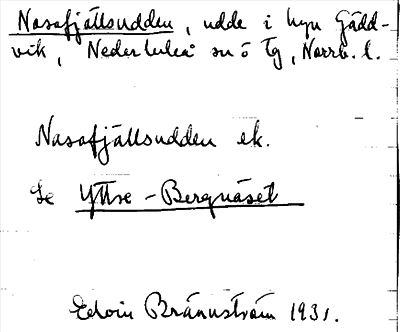 Nasafjällsudden, udde i byn Gädd-
vik, Nederluleå sn ö Tg, Norrb. l.
Nasafjällsudden ek.
Se Yttre-Bergnäset
Edvin Brännström 1931.